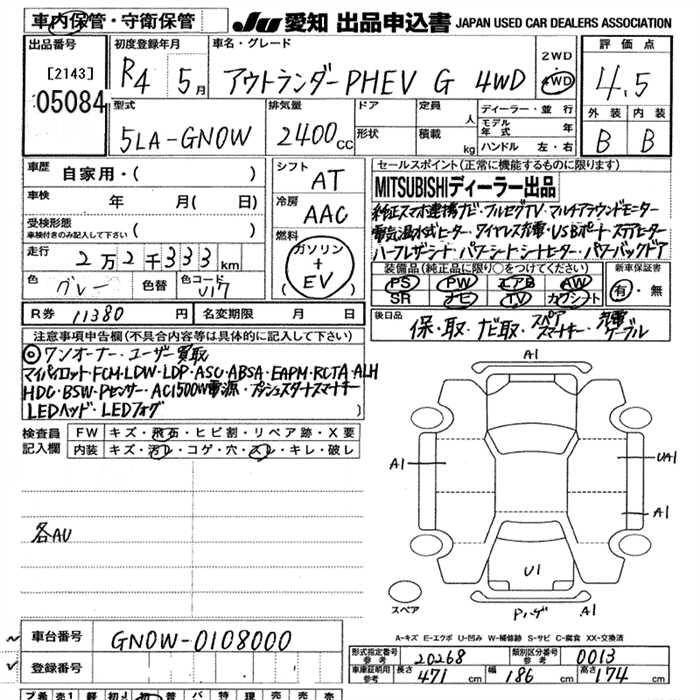 車内保管・守衛保管
JU 愛知 出品申込書 JAPAN USED CAR DEALERS ASSOCIATION
出品番号
[2143]
05084
初度登録年月
R4 5月
車名・グレード
アウトランダーPHEV G 4WD
2WD
4WD
評価点
4.5
外装 内装
B B
型式
5LA-GN0W
排気量
2400CC
ドア
形状
定員 人
積載 kg
ディーラー・並行
モデル年式 年
ハンドル 左・右
車歴
自家用・( )
車検
年 月( 日)
受検形態
車検付きのみ記入して下さい ( )
走行
2万2千333km
色
グレー
色替
色コード
U17
シフト
AT
冷房
AAC
燃料
ガソリン
+
EV
セールスポイント(正常に機能するものに限ります)
MITSUBISHIディーラー出品
純正スマホ連携ナビ・フルセグTV・マルチアラウンドモニター
電気温水式ヒーター・ワイヤレス充電・USBポート・ステアヒーター
ハーフレザーシート・パワーシート・シートヒーター・パワーバックドア
装備品(純正品に限り○をつけてください)
PS PW エアB AW
SR ナビ TV カワシート
新車保証書
有・無
R券 11380円
名変期限 月 日
後日品
保・取・ナビ取・スペアスマートキー・充電ケーブル
注意事項申告欄(不具合内容等は具体的に記入して下さい)
◎ワンオーナー・ユーザー買取
マイパイロット・FCM・LDW・LDP・ASC・ABSA・EAPM・RCTA・ALH
HDC・BSW・Pセンサー・AC1500W電源・プッシュスタートスマートキー
LEDヘッド・LEDフォグ )
検査員記入欄
FW キズ・飛石・ヒビ割・リペア跡・X要
内装 キズ・汚レ・コゲ・穴・スレ・キレ・破レ
各AU
A1
A1
UA1
A1
U1
A1
スペア
A-キズ E-エクボ U-凹み W-補修跡 S-サビ C-腐食 XX-交換済
車台番号
GN0W-0108000
登録番号
形式指定番号 参考
20268
類別区分番号 参考
0013
車庫証明用 参考
長さ 471cm
幅 186cm
高さ 174cm